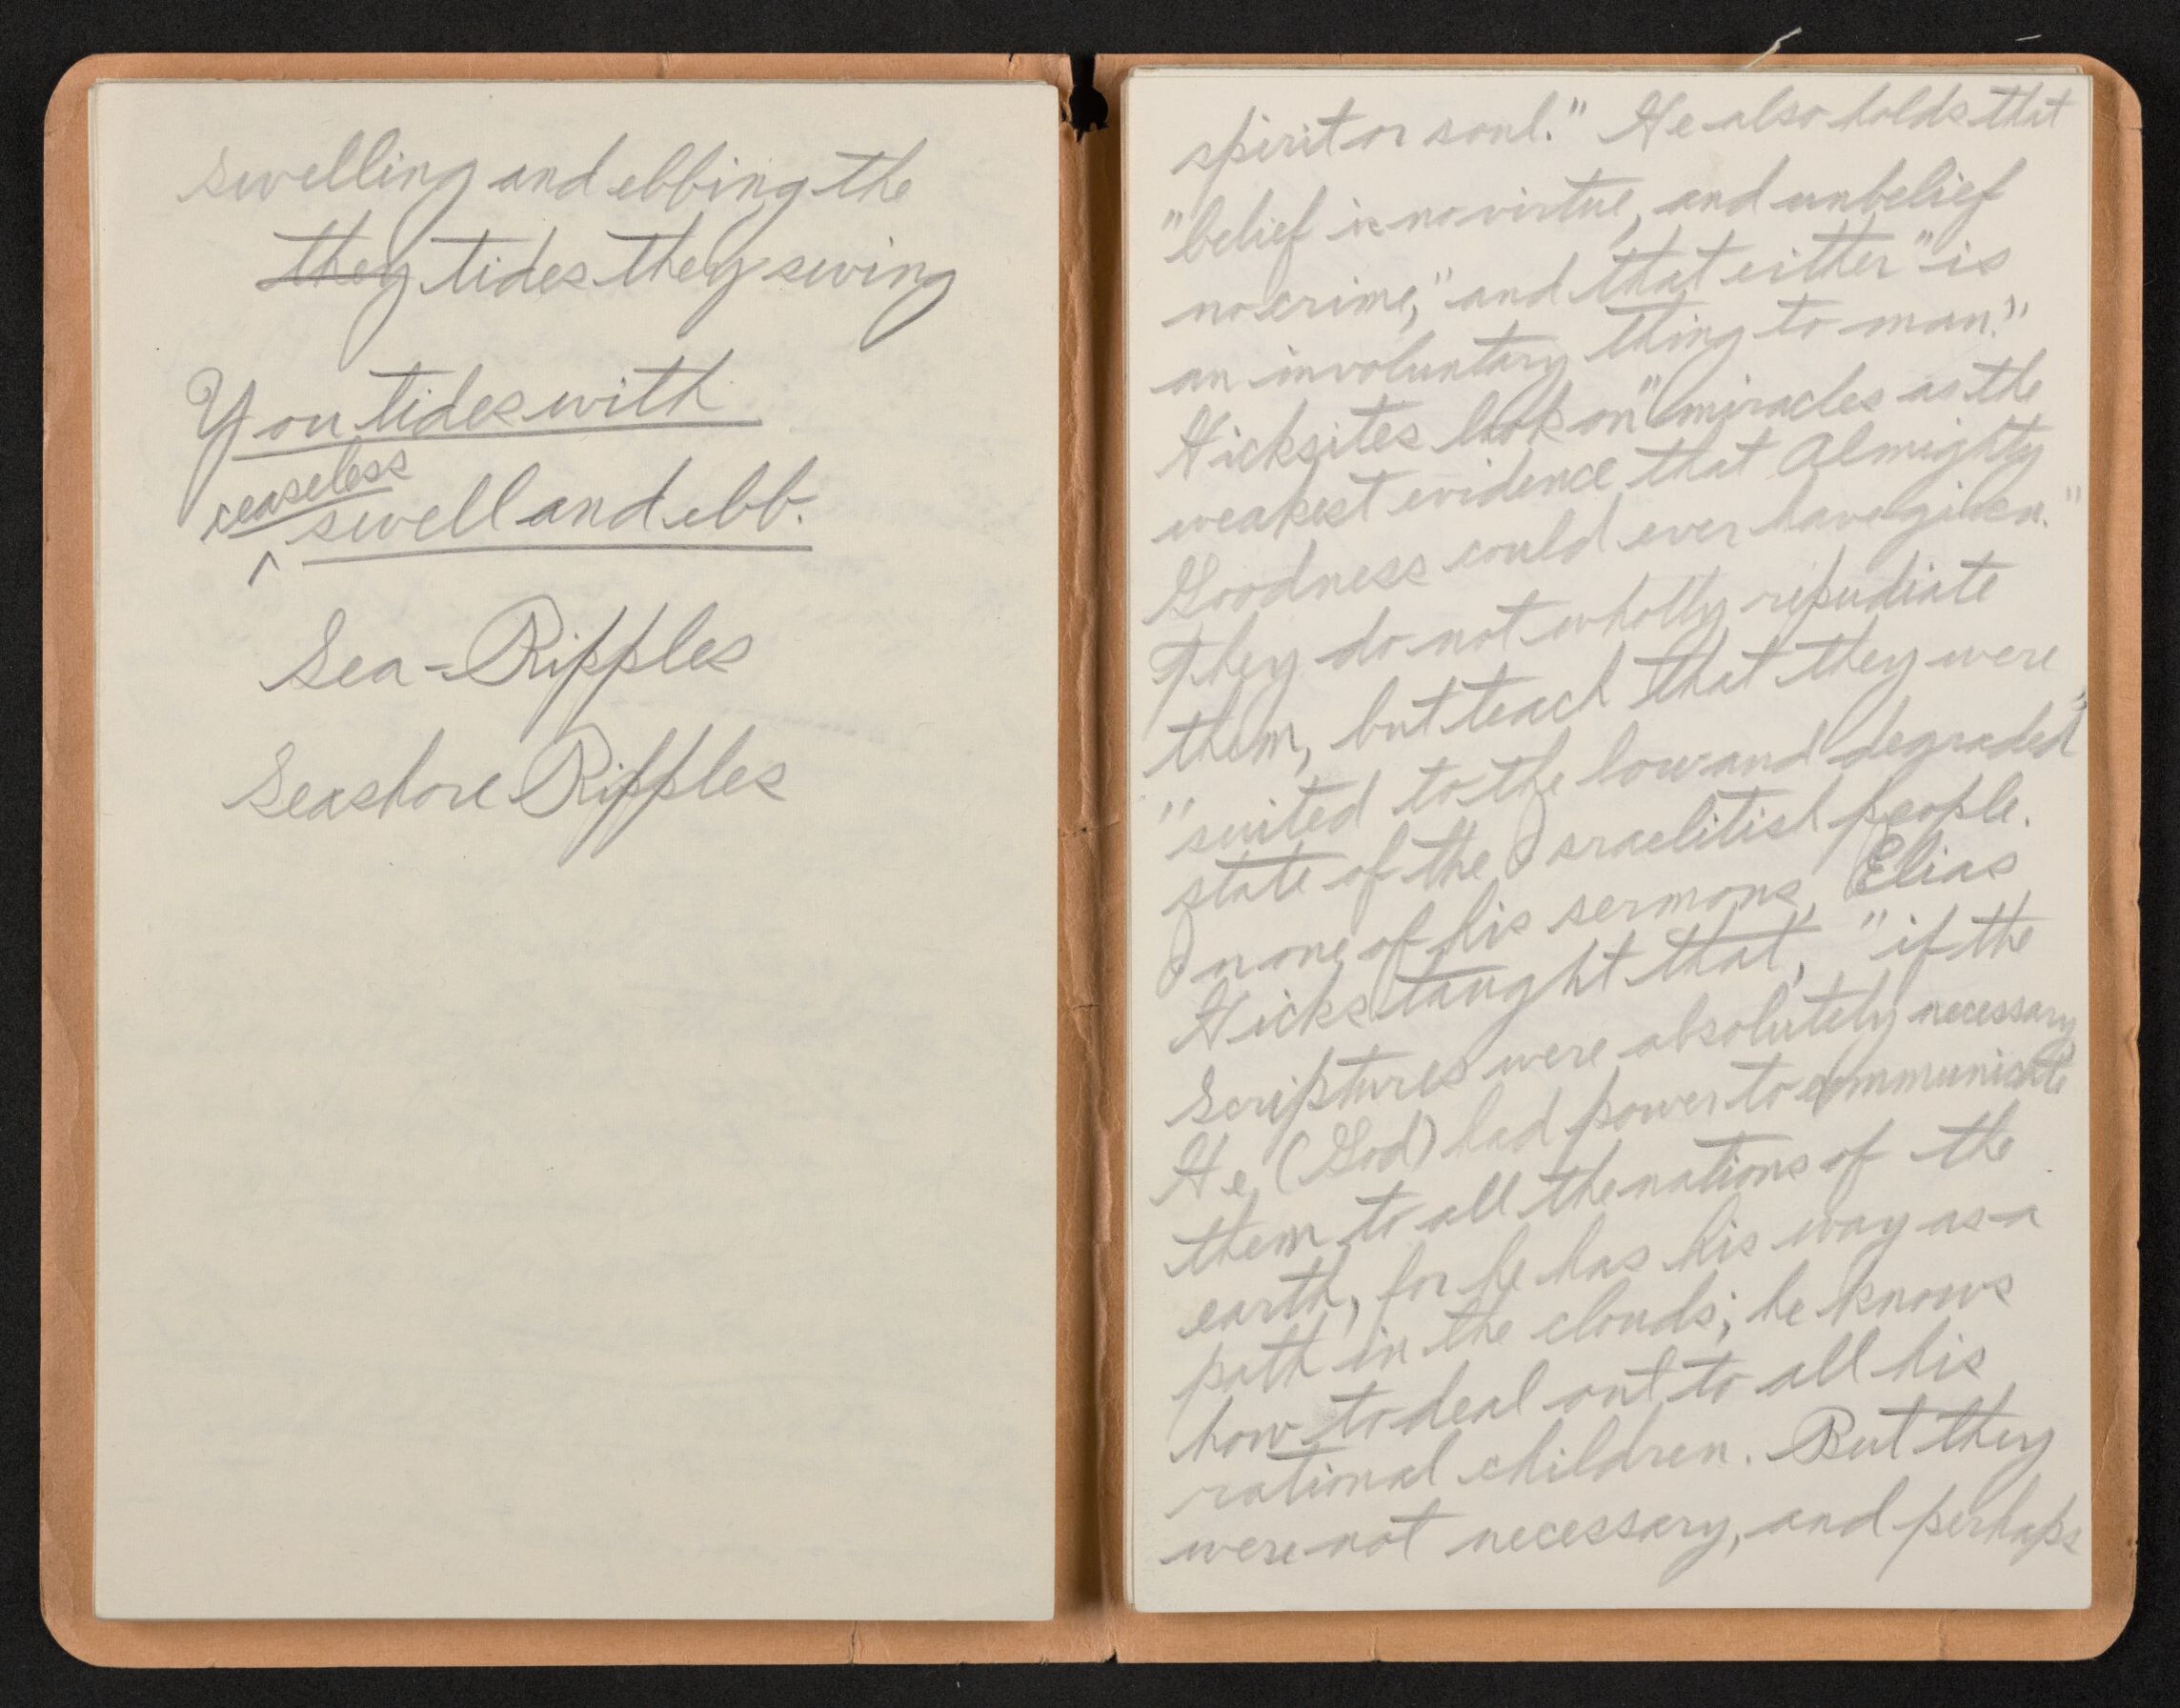 swelling and ebbing the
they tides they swing
You tides with
ceaseless
^ swell and ebb.
Sea-Ripples
Seashore Ripples
spirit or soul." He also holds that
"belief is no virtue, and unbelief
no crime," and that either "is
an involuntary thing to man."
Hicksites look on "miracles as the
weakest evidence that Almighty
Goodness could ever have given."
They do not wholly repudiate
them, but teach that they were
"suited to the low and degraded"
state of the Israelitish people.
In one of his sermons, Elias
Hicks taught that, "if the
Scriptures were absolutely necessary,
He, (God) had power to communicate
them to all the nations of the
earth, for he has his way as a
path in the clouds; he knows
how to deal out to all his
rational children. But they
were not necessary, and perhaps